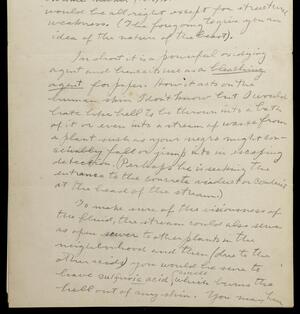 would be all right except for structural
weakness. (The foregoing to give you an
idea of the nature of the beast).
In short it is a powerful oxidizing
agent and hence its use as a bleaching
agent for paper. How it acts on the
human skin I don't know but I would
hate like hell to be thrown into a bath
of it or even into a stream of waste from
a plant such as your negro might con-
ceivably fall or jump into in escaping
detection (Perhaps he is seeking the
entrance to the concrete viaduct or conduit
at the head of the stream.)
To make sure of the viciousness of
the fluid, the stream could also serve
as open sewer to other plants in the
neighborhood and then (due to the
other acids) you would be sure to
have sulfuric acid, which burns the
hell out of any skin. You may